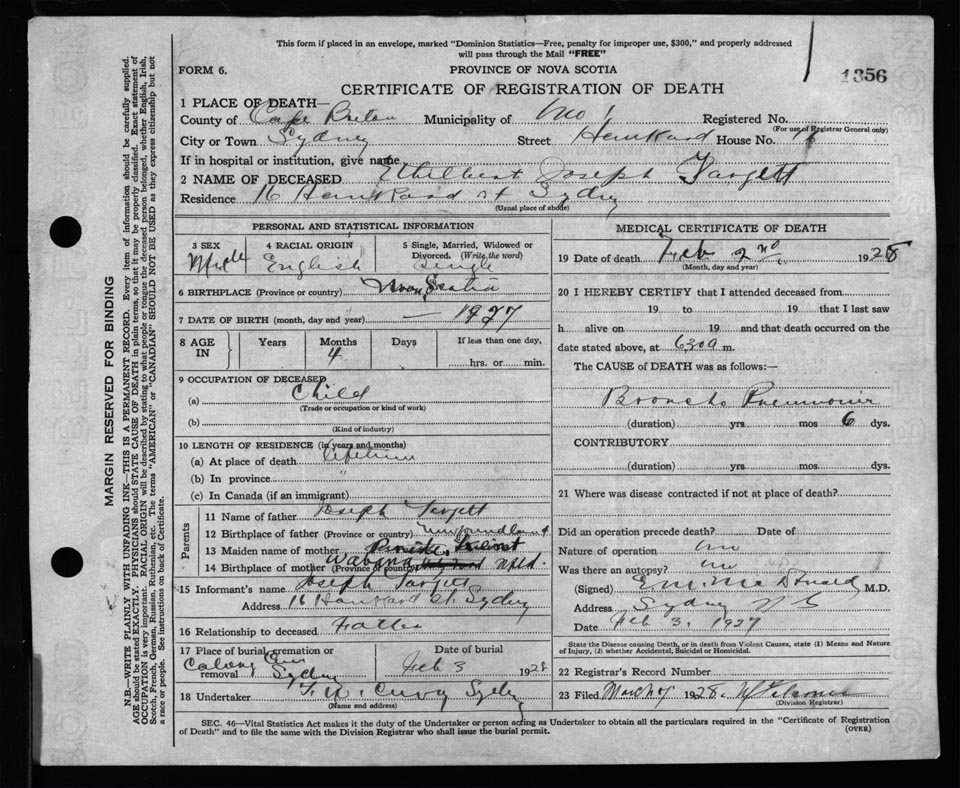 This form if placed in an envelope, marked "Dominion Statistics—Free, penalty for improper use, $300," and properly addressed
will pass through the Mail "FREE"
FORM 6.
PROVINCE OF NOVA SCOTIA
1356
CERTIFICATE OF REGISTRATION OF DEATH
1 PLACE OF DEATH—
County of Cape Breton Municipality of No 1 Registered No.
(For use of Registrar General only)
City or Town Sydney Street House No. 16
If in hospital or institution, give name
2 NAME OF DECEASED Ethelbert Joseph Targett
Residence 16 St Sydney
(Usual place of abode)
PERSONAL AND STATISTICAL INFORMATION
3 SEX Male
4 RACIAL ORIGIN English
5 Single, Married, Widowed or Divorced. (Write the word) Single
6 BIRTHPLACE (Province or country) Nova Scotia
7 DATE OF BIRTH (month, day and year) — 1927
8 AGE IN Years Months 4 Days If less than one day, hrs. or min.
9 OCCUPATION OF DECEASED
(a) Child
(Trade or occupation or kind of work)
(b)
(Kind of industry)
10 LENGTH OF RESIDENCE (in years and months)
(a) At place of death Lifetime
(b) In province "
(c) In Canada (if an immigrant)
Parents
11 Name of father Joseph Targett
12 Birthplace of father (Province or country) Newfoundland
13 Maiden name of mother
14 Birthplace of mother (Province or country) Wabana Nfld.
15 Informant's name Joseph Targett
Address 16 St. Sydney
16 Relationship to deceased Father
17 Place of burial, cremation or removal Sydney
Date of burial Feb 3 1928
18 Undertaker Sydney
(Name and address)
MEDICAL CERTIFICATE OF DEATH
19 Date of death Feb 2nd 1928
(Month, day and year)
20 I HEREBY CERTIFY that I attended deceased from
19 to 19 that I last saw
h alive on 19 and that death occurred on the
date stated above, at 630a m.
The CAUSE of DEATH was as follows:—
Broncho Pneumonia
(duration) yrs. mos 6 dys.
CONTRIBUTORY
(duration) yrs. mos dys.
21 Where was disease contracted if not at place of death?
Did an operation precede death? Date of
Nature of operation no
Was there an autopsy? no
(Signed) McDonald M.D.
Address Sydney N S
Date Feb 3, 1927
State the Disease causing Death, or in death from Violent Causes, state (1) Means and Nature
of Injury, (2) whether Accidental, Suicidal or Homicidal.
22 Registrar's Record Number
23 Filed March 7 1928
(Division Registrar)
SEC. 46—Vital Statistics Act makes it the duty of the Undertaker or person acting as Undertaker to obtain all the particulars required in the "Certificate of Registration
of Death" and to file the same with the Division Registrar who shall issue the burial permit.
(OVER)
MARGIN RESERVED FOR BINDING
N.B.—WRITE PLAINLY WITH UNFADING INK—THIS IS A PERMANENT RECORD. Every item of information should be carefully supplied.
AGE should be stated EXACTLY. PHYSICIANS should STATE CAUSE OF DEATH in plain terms, so that it may be properly classified. Exact statement of
OCCUPATION is very important. RACIAL ORIGIN will be described by stating to what people or tongue the deceased person belonged, whether English, Irish,
Scotch, French, German, Russian, Ruthenian, etc. The terms "AMERICAN" or "CANADIAN" SHOULD NOT BE USED as they express citizenship but not
a race or people. See instructions on back of Certificate.